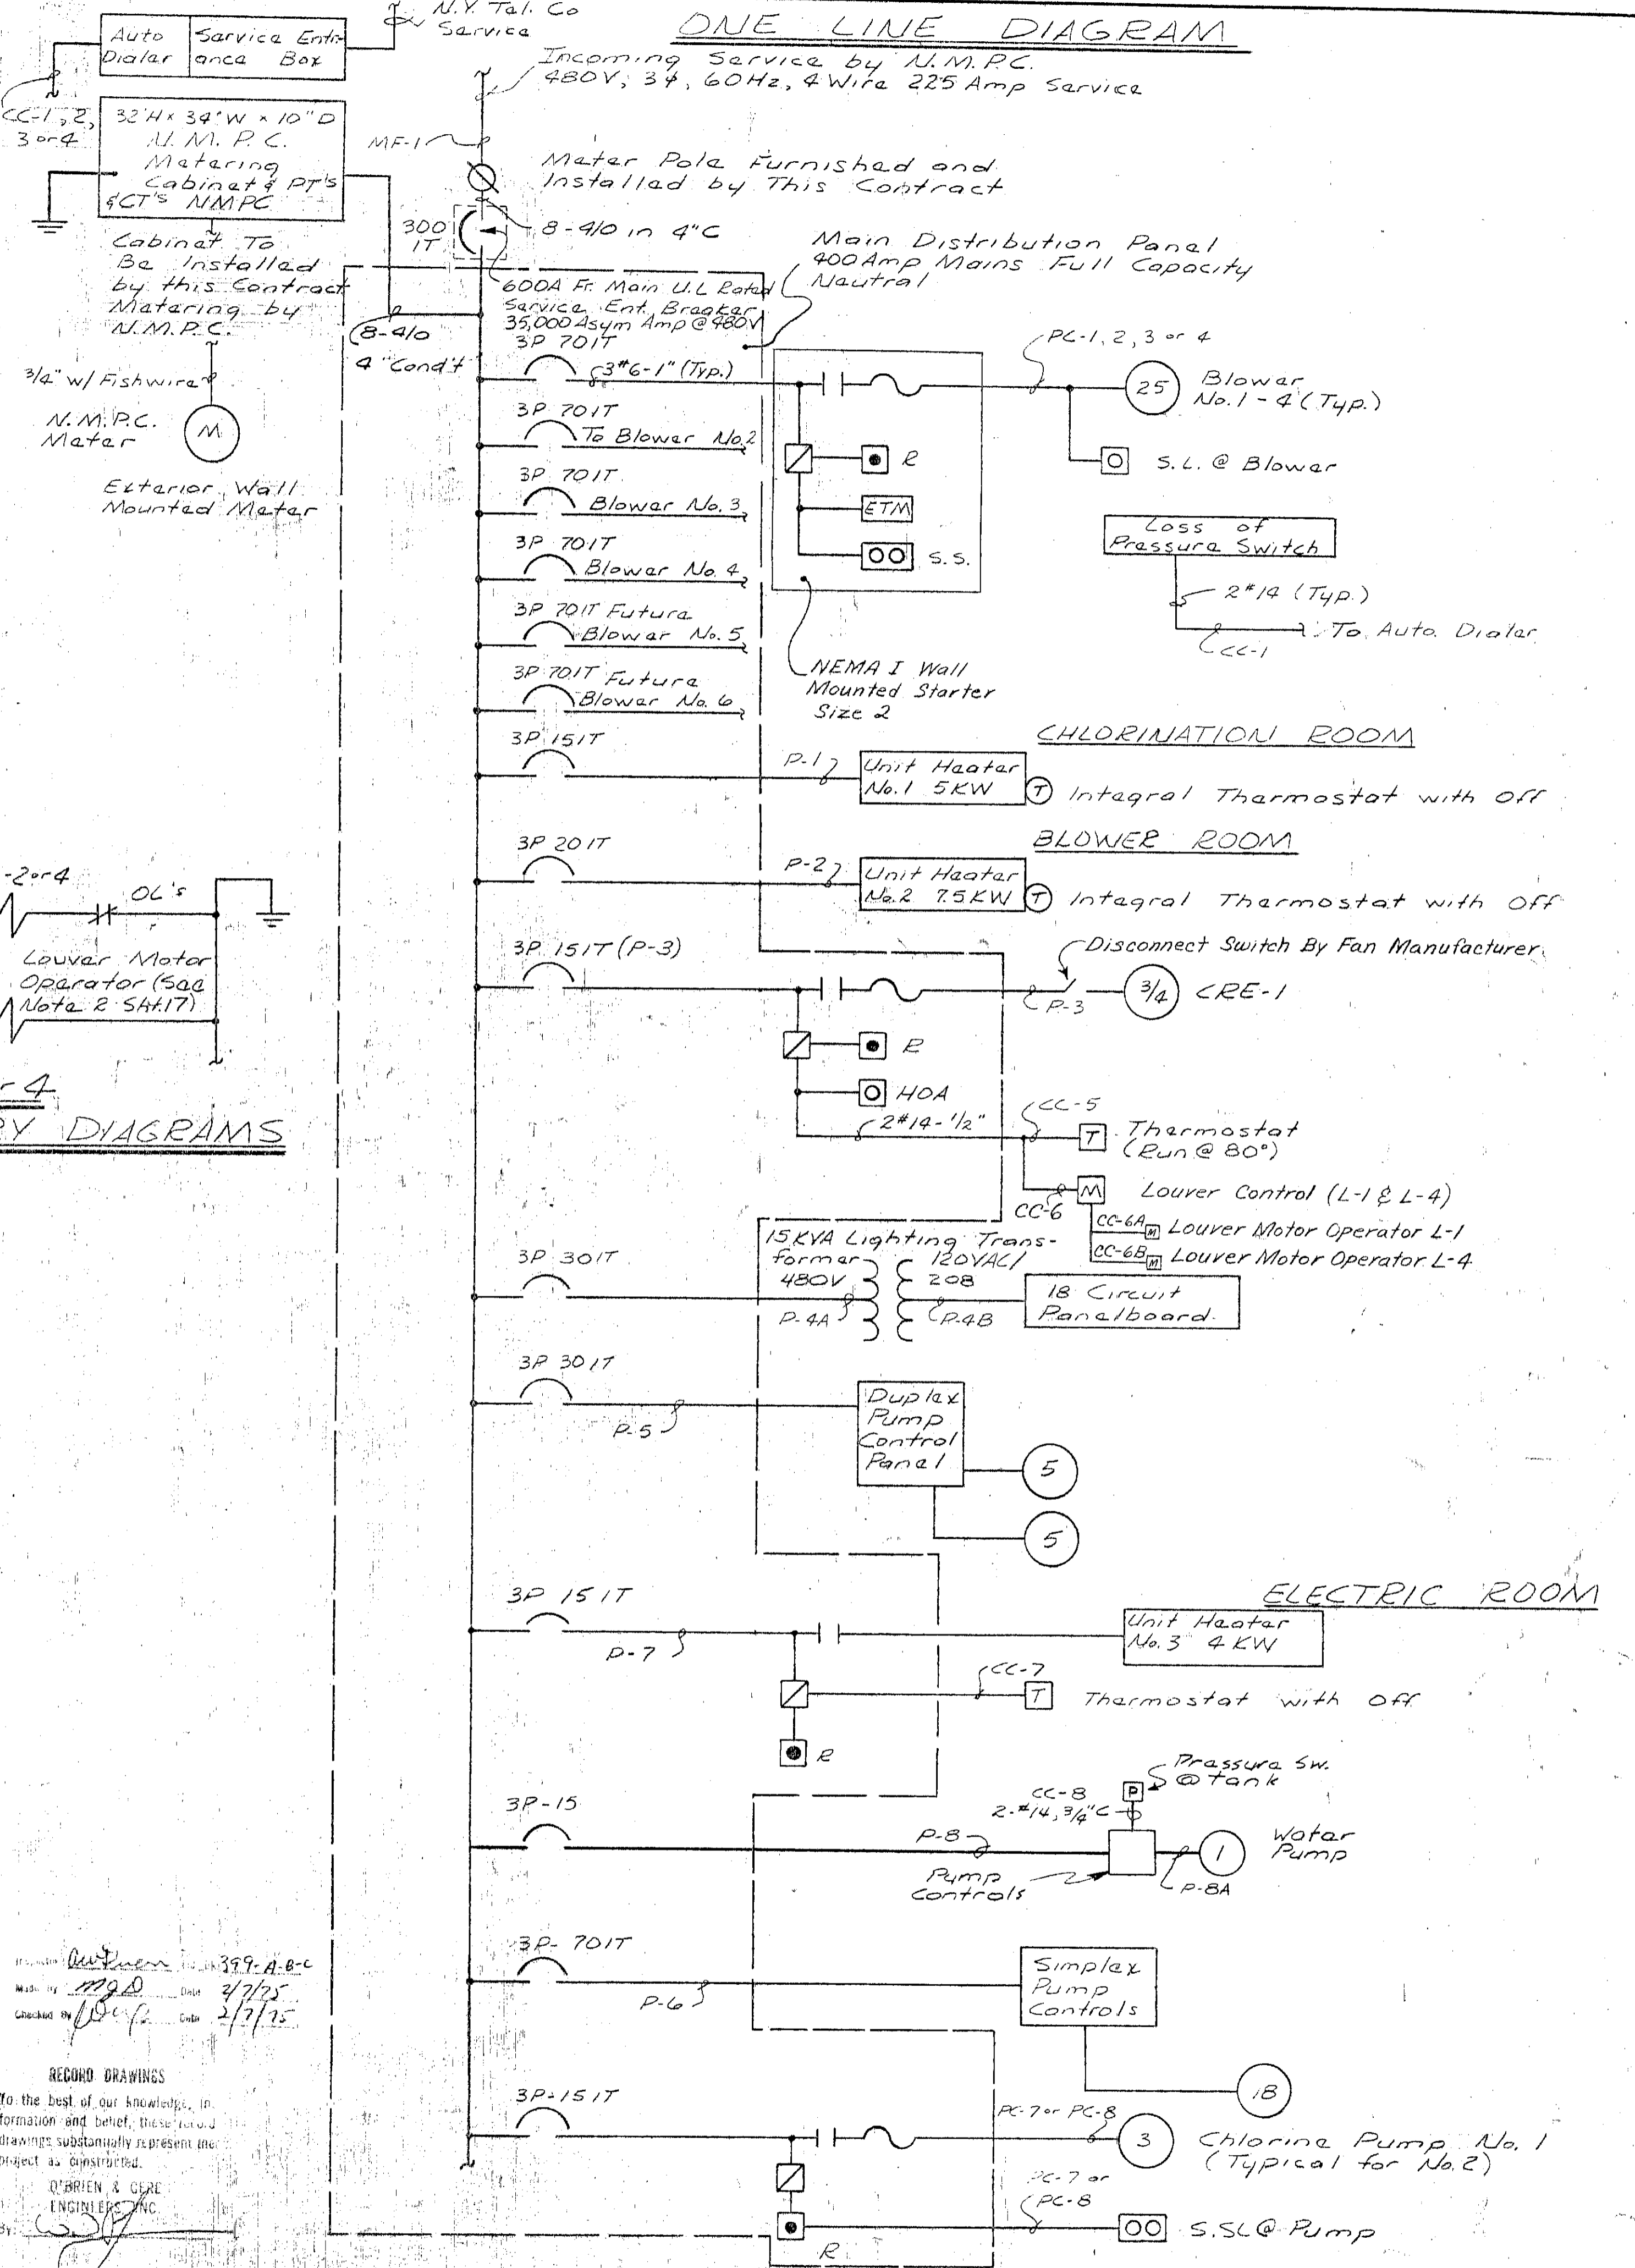 ONE LINE DIAGRAM
N.Y. Tel. Co
Service
Auto Dialer
Service Entr-
ance Box
Incoming Service by N.M.P.C.
480V, 3φ, 60Hz, 4 Wire 225 Amp Service
CC-1, 2,
3 or 4
32"H x 34"W x 10"D
N.M.P.C.
Metering
Cabinet & PT's
& CT's NMPC
MF-1
Meter Pole Furnished and
Installed by This Contract
300
IT
8-4/0 in 4"C
Cabinet To
Be Installed
by this Contract
Metering by
N.M.P.C.
Main Distribution Panel
400 Amp Mains Full Capacity
Neutral
600A Fr. Main U.L Rated
Service Ent. Breaker
35,000 Asym Amp @ 480V
8-4/0
4" Cond't
3/4" w/ Fishwire
N.M.P.C.
Meter
M
Exterior Wall
Mounted Meter
3P 70IT
3#6-1" (Typ.)
PC-1, 2, 3 or 4
25
Blower
No. 1-4 (Typ.)
3P 70IT
To Blower No.2
R
S.L. @ Blower
3P 70IT
Blower No. 3
ETM
Loss of
Pressure Switch
3P 70IT
Blower No. 4
S.S.
2#14 (Typ.)
To Auto. Dialer
CC-1
3P 70IT Future
Blower No. 5
3P 70IT Future
Blower No. 6
NEMA I Wall
Mounted Starter
Size 2
CHLORINATION ROOM
3P 15IT
P-1
Unit Heater
No.1 5KW
T
Integral Thermostat with Off
BLOWER ROOM
3P 20IT
P-2
Unit Heater
No.2 7.5KW
T
Integral Thermostat with Off
-2 or 4
OL's
Louver Motor
Operator (See
Note 2 Sht.17)
-4
RY DIAGRAMS
3P 15IT (P-3)
Disconnect Switch By Fan Manufacturer
P-3
3/4
CRE-1
R
HOA
2#14-1/2"
CC-5
T
Thermostat
(Run @ 80°)
CC-6
M
Louver Control (L-1 & L-4)
CC-6A M Louver Motor Operator L-1
CC-6B M Louver Motor Operator L-4
3P 30IT
15 KVA Lighting Trans-
former
480V
120VAC/
208
P-4A
P-4B
18 Circuit
Panelboard
3P 30IT
P-5
Duplex
Pump
Control
Panel
5
5
ELECTRIC ROOM
3P 15IT
P-7
Unit Heater
No.3 4 KW
CC-7
T
Thermostat with Off
R
3P-15
Pressure Sw.
@ tank
P
CC-8
2-#14, 3/4"C
P-8
Pump
Controls
1
P-8A
Water
Pump
3P-70IT
P-6
Simplex
Pump
Controls
18
3P-15IT
PC-7 or PC-8
3
Chlorine Pump No. 1
(Typical for No.2)
PC-7 or
PC-8
R
S.SL @ Pump
399-A-B-C
Made by MJD Date 2/7/75
Checked By Date 2/7/75
RECORD DRAWINGS
To the best of our knowledge, in-
formation and belief, these record
drawings substantially represent the
project as constructed.
O'BRIEN & GERE
ENGINEERS INC
By: